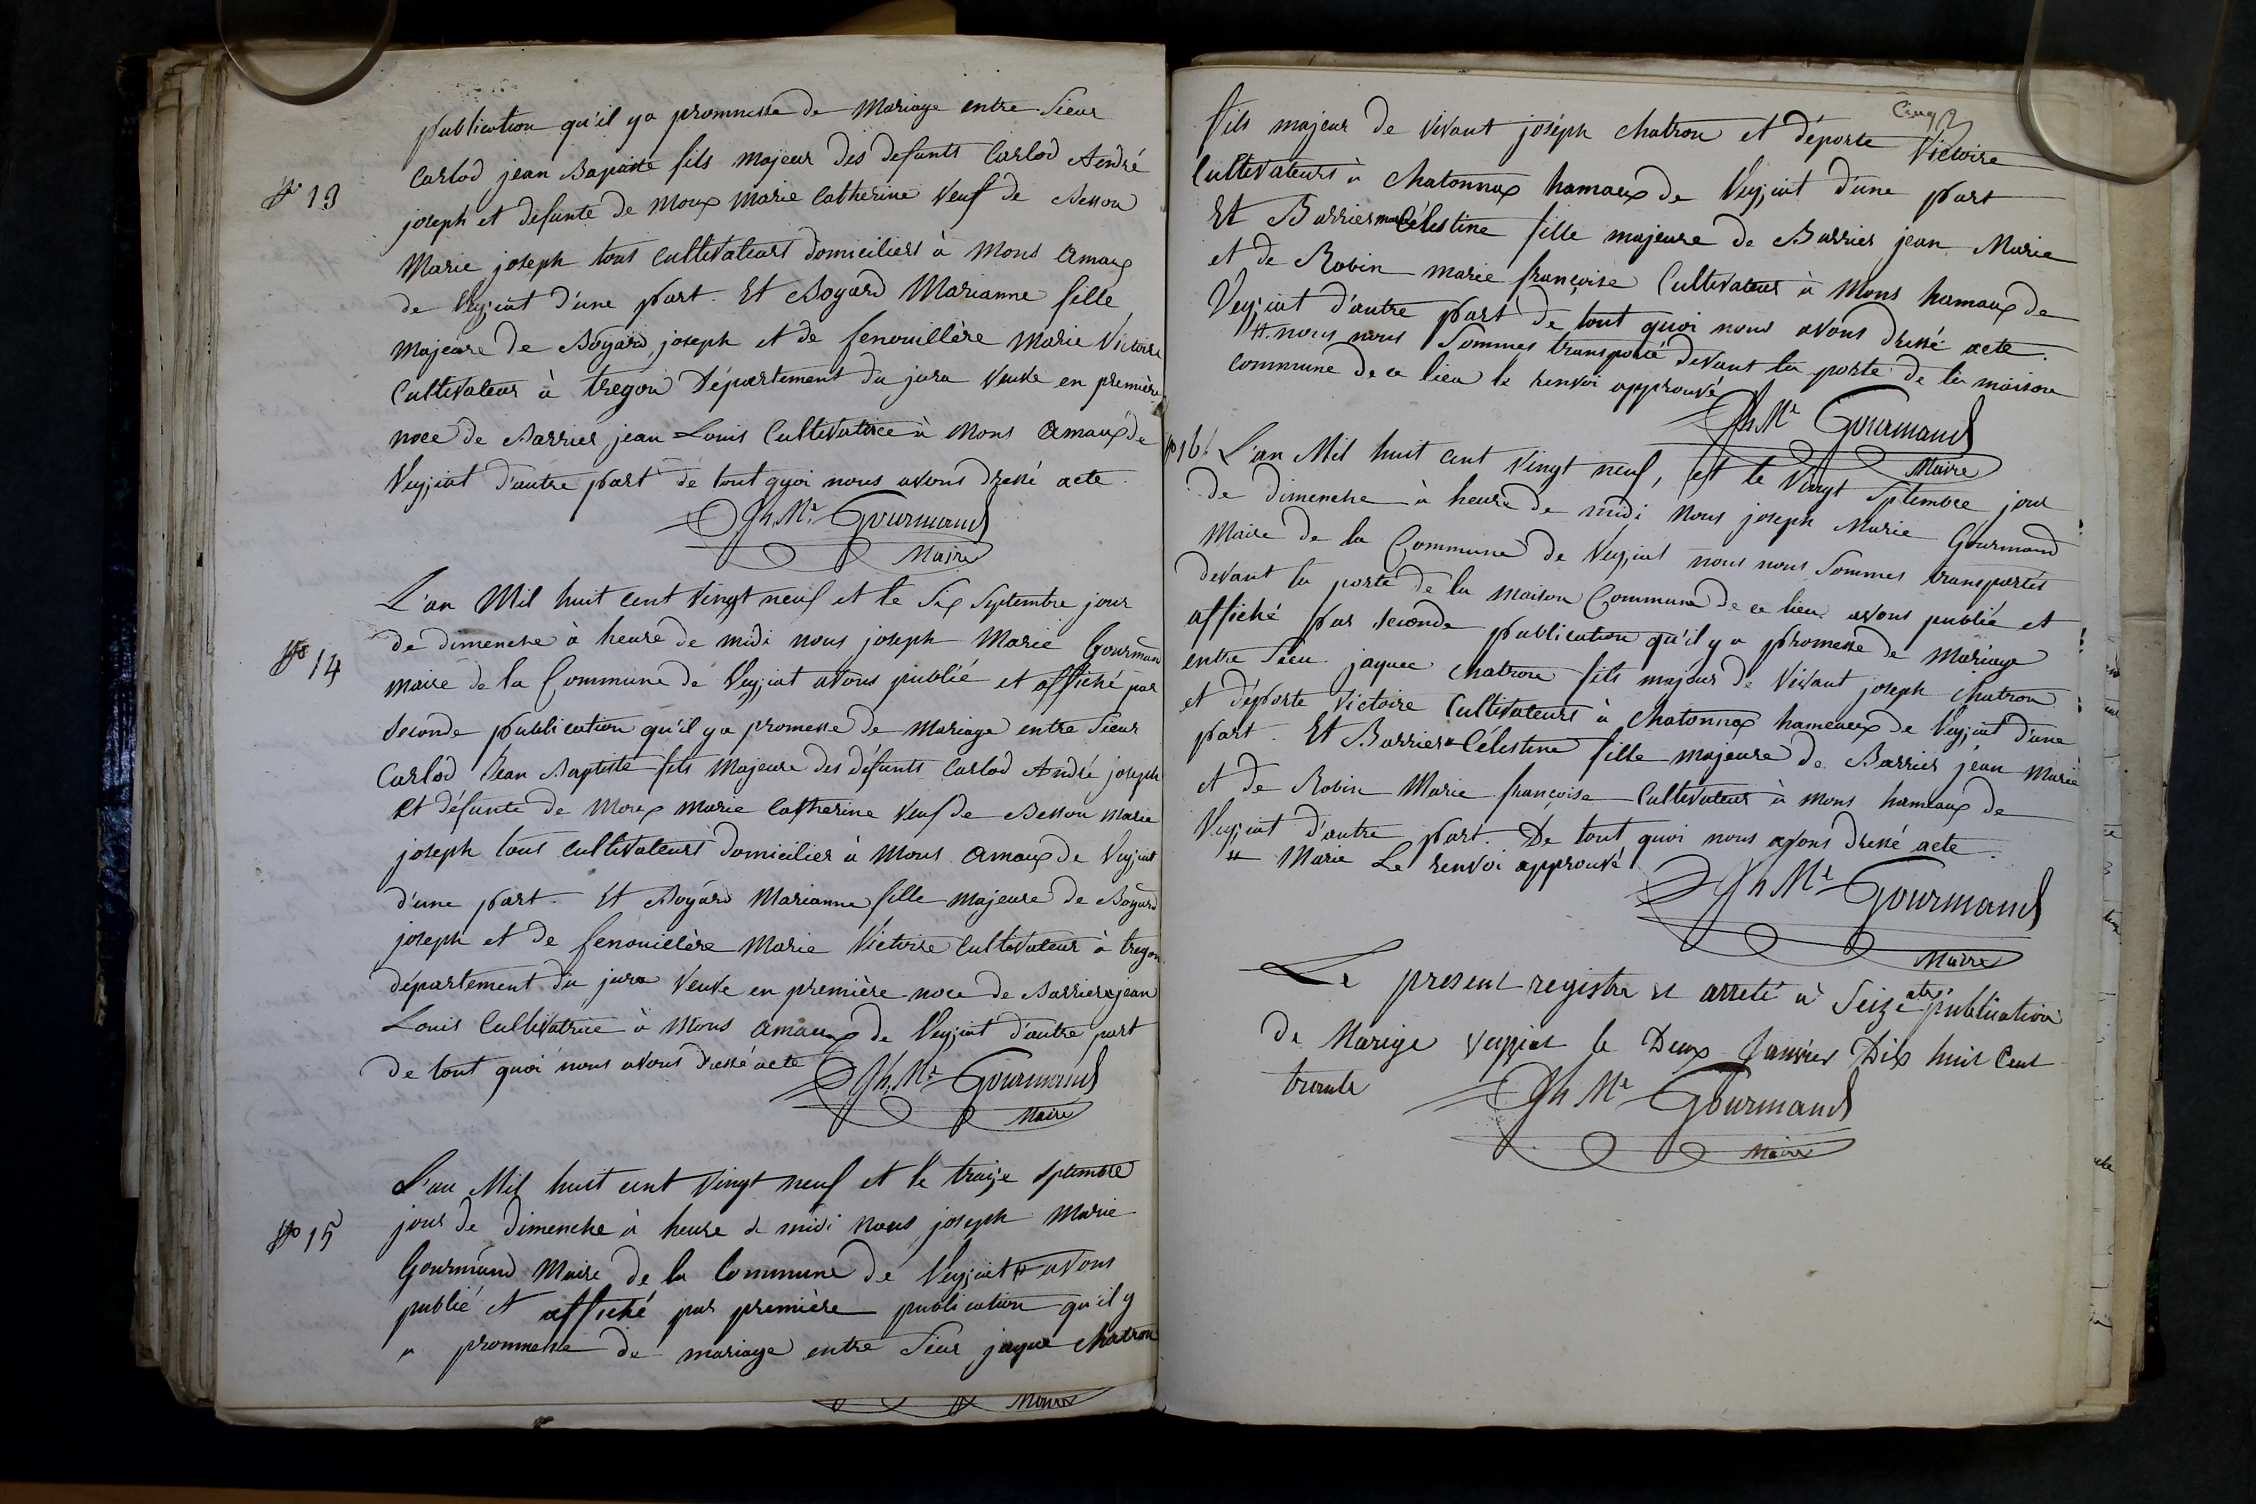 publication qu'il ya promnesse de Mariage entre Sieur
N° 13
Carlod jean Bapaiste fils majeur des defunts Carlod André
joseph et defunte de Moux Marie Catherine Veuf de Besson
Marie joseph tous Cultivateurs domiciliers à Mons amaux
de Veyziat d'une part. Et Boyard Marianne fille
Majeure de Boyard joseph et de fenouillère Marie Victoire
Cultivateur à tregon Département du jura Veuve en première
noce de Barrier jean Louis Cultivatrice à Mons Amaux de
Veyziat d'autre part de tout quoi nous avons dressé acte.
Jh. Mie Gourmand
Maire
L'an Mil huit cent Vingt neuf et le Six Septembre jour
N° 14
de dimenche à heure de midi nous joseph Marie Gourman
maire de la Commune de Veyziat avons publié et affiché par
Seconde publication qu'il ya promesse de Mariage entre Sieur
Carlod Jean Baptiste fils Majeure des défunts Carlod André joseph
Et défunte de Moux Marie Catherine Veuf de Besson Marie
joseph tous cultivateurs domicilier à Mons amaux de Veyziat
d'une part. Et Boyard Marianne fille Majeure de Boyard
joseph et de fenouillère Marie Victoire Cultivateur à tregon
département du jura Veuve en première noce de Barriere jean
Louis Cultivatrice à Mons amaux de Veyziat d'autre part
de tout quoi nous avons dressé acte
Jh. Mie Gourmand
Maire
L'an Mil huit cent Vingt neuf et le traize Sptembre
N° 15
jour de dimenche à heure de midi nous joseph Marie
Gourmand Maire de la Commune de Veyziat # avons
publié et affiché par première publication qu'il y
a promnesse de mariage entre Sieur jaque Chatron
Maire
Cinq
fils majeur de vivant joséph chatron et déporte Victoire
Cultivateurs à Chatonnax hamaux de Veyziat d'une part
Et Barrier marie Célestine fille majeure de Barrier jean Marie
et de Robin marie françoise Cultivateur à Mons hamaux de
Veyziat d'autre part de tout quoi nous avons dressé acte.
# nous nous Sommes transporté devant la porte de la maison
commune de ce lieu le renvoi approuvé
Jh Mie Gourmand
Maire
N° 16. L'an Mil huit cent Vingt neuf, et le Vingt Sptembre jour
de dimenche à heure de midi Nous joseph Marie Gourmand
Maire de la Commune de Veyziat nous nous Sommes transportés
devant la porte de la maison Commune de ce lieu avons publié et
affiché par seconde publication qu'il y a promesse de Mariage
entre Sieu jaque chatron fils majeur de Vivant joseph Chatron
et déporte Victoire Cultivateurs à Chatonnax hameaux de Veyziat d'une
part. Et Barrier # Célestine fille majeure de Barrier jean Marie
et de Robin Marie françoise Cultivateur à Mons hamaux de
Veyziat d'autre part. De tout quoi nous avons dressé acte.
# Marie Le renvoi approuvé
Jh Mie Gourmand
Maire
Le present registre et arreté à Seize acte publication
de Marige veyziat le Deux Janvier Dix huit Cent
trente
Jh Mie Gourmand
Maire